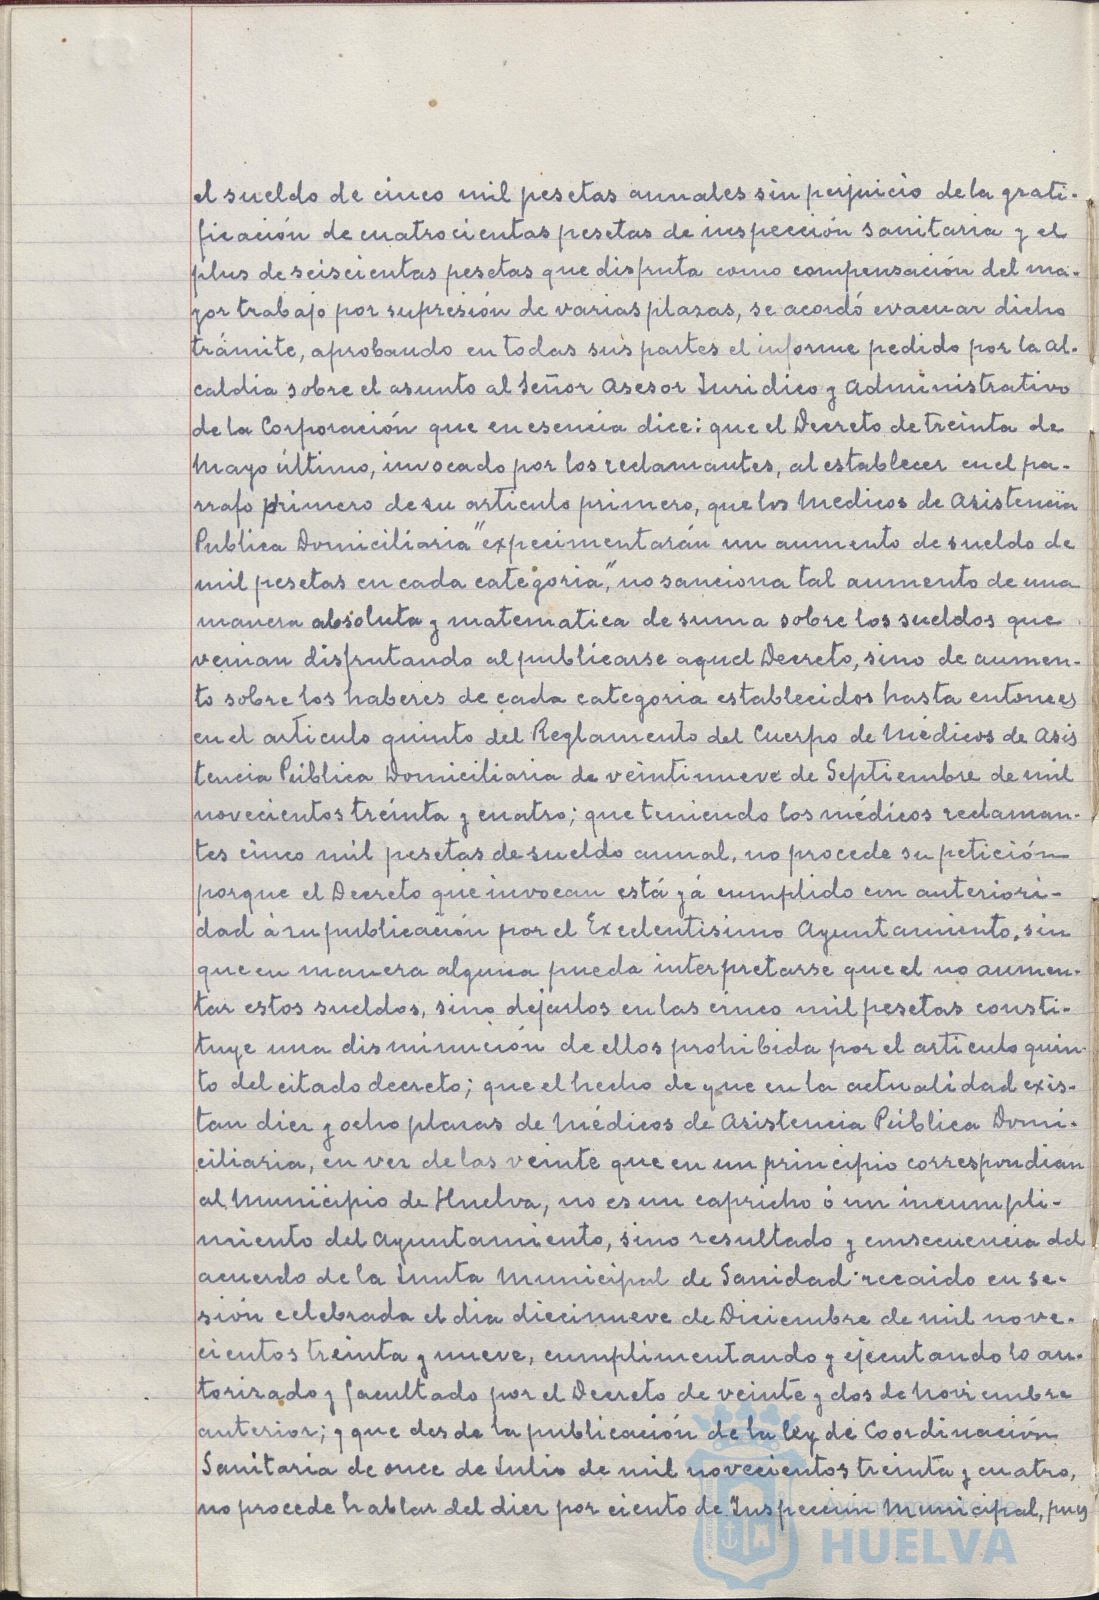 el sueldo de cinco mil pesetas anuales sin perjuicio de la grati-
ficación de cuatrocientas pesetas de inspección sanitaria y el
plus de seiscientas pesetas que disfruta como compensación del ma-
yor trabajo por supresión de varias plazas, se acordó evacuar dicho
trámite, aprobando en todas sus partes el informe pedido por la Al-
caldia sobre el asunto al Señor Asesor Juridico y Administrativo
de la Corporación que en esencia dice: que el Decreto de treinta de
Mayo último, invocado por los reclamantes, al establecer en el pa-
rrafo primero de su articulo primero, que los Medicos de Asistencia
Publica Domiciliaria "expecimentarán un aumento de sueldo de
mil pesetas en cada categoria", no sanciona tal aumento de una
manera absoluta y matematica de suma sobre los sueldos que
venian disfrutando al publicarse aquel Decreto, sino de aumen-
to sobre los haberes de cada categoria establecidos hasta entonces
en el articulo quinto del Reglamento del Cuerpo de Médicos de Asis
tencia Pública Domiciliaria de veintinueve de Septiembre de mil
novecientos treinta y cuatro; que teniendo los médicos reclaman-
tes cinco mil pesetas de sueldo anual, no procede su petición
porque el Decreto que invocan está yá cumplido con anteriori-
dad á su publicación por el Excelentisimo Ayuntamiento, sin
que en manera alguna pueda interpretarse que el no aumen-
tar estos sueldos, sino dejarlos en las cinco mil pesetas consti-
tuye una disminución de ellos prohibida por el articulo quin-
to del citado decreto; que el hecho de que en la actualidad exis-
tan diez y ocho plazas de Médicos de Asistencia Pública Domi-
ciliaria, en vez de las veinte que en un principio correspondian
al Municipio de Huelva, no es un capricho ó un incumpli-
miento del Ayuntamiento, sino resultado y consecuencia del
acuerdo de la Junta Municipal de Sanidad recaido en se-
sión celebrada el dia diecinueve de Diciembre de mil nove-
cientos treinta y nueve, cumplimentando y ejecutando lo au-
torizado y facultado por el Decreto de veinte y dos de Noviembre
anterior; y que desde la publicación de la ley de Coordinación
Sanitaria de once de Julio de mil novecientos treinta y cuatro,
no procede hablar del diez por ciento de Inspección Municipal, pues
Ayuntamiento de
HUELVA